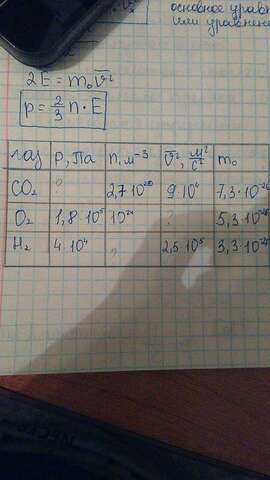 основное уравн
или уравнение
2E = m₀v̄²
p = 2/3 n · E
газ p, Па n, м⁻³ v̄², м²/с² m₀
CO₂ ? 2,7·10²⁰ 9·10⁴ 7,3·10⁻²⁶
O₂ 1,8·10⁵ 10²⁴ ? 5,3·10⁻²⁶
H₂ 4·10⁴ ? 2,5·10⁵ 3,3·10⁻²⁷